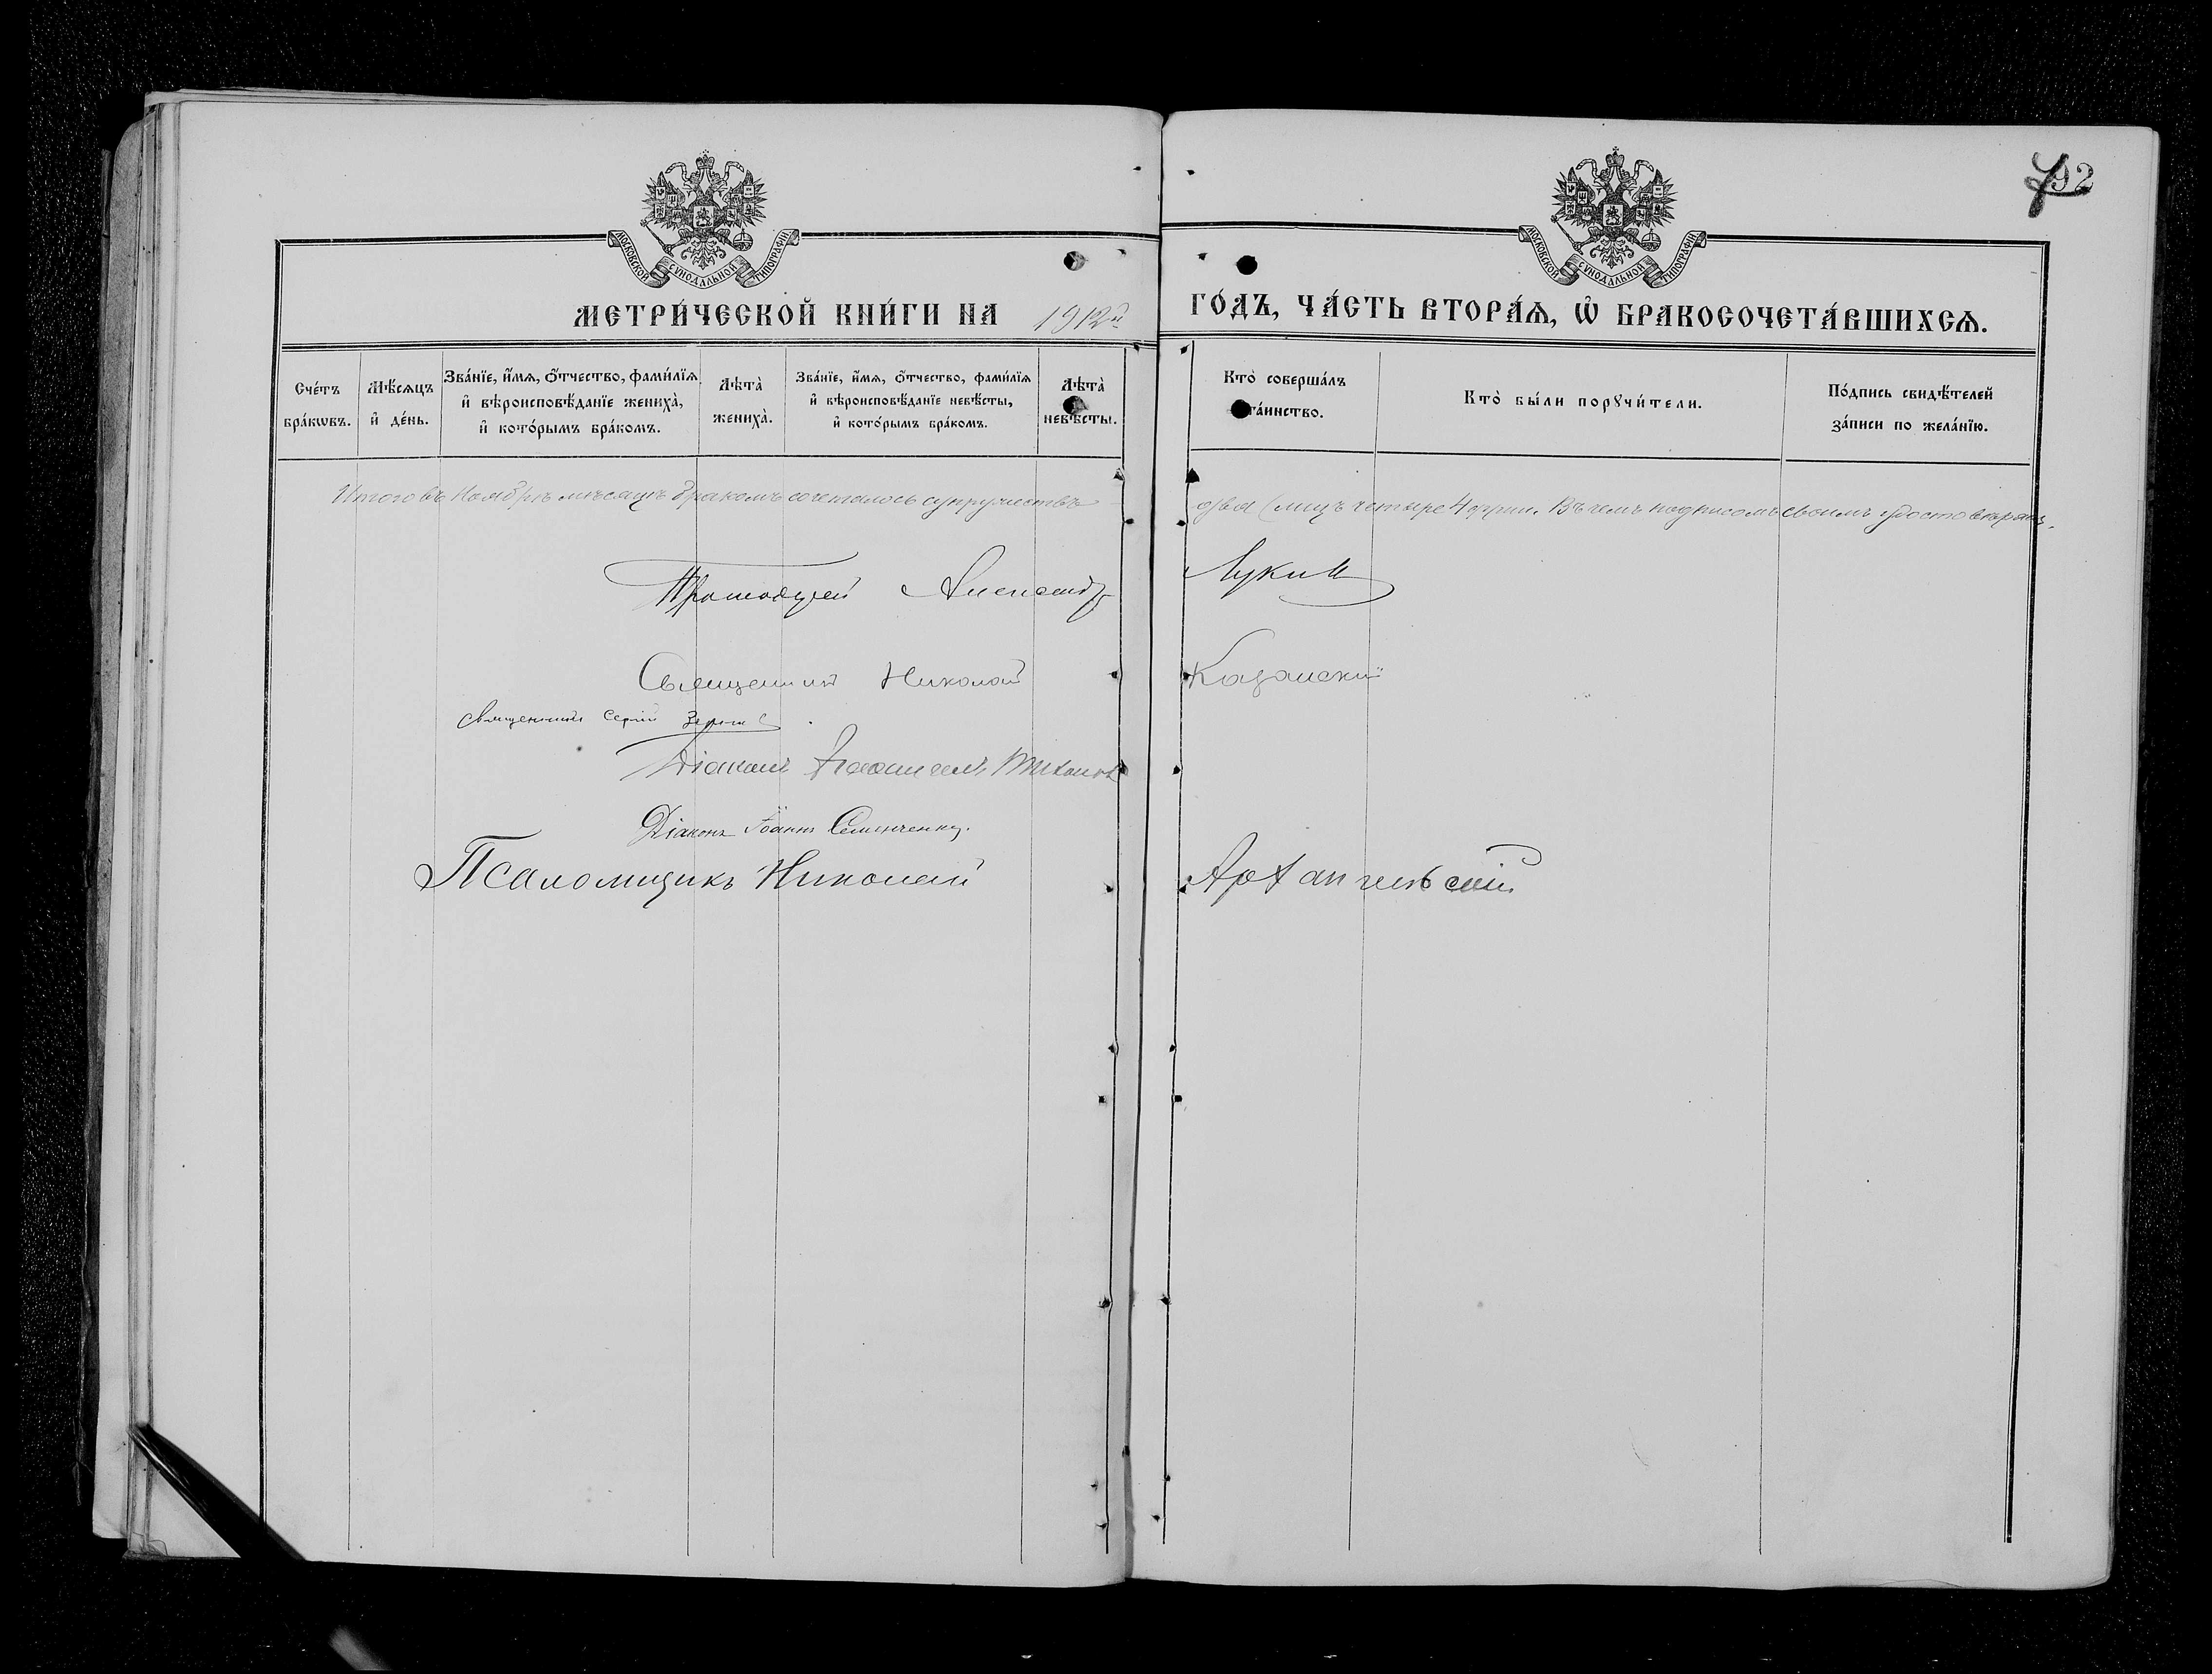 492
МОСКОВСКОЙ СУНОДАЛЬНОЙ ТИПОГРАФІИ
МОСКОВСКОЙ СУНОДАЛЬНОЙ ТИПОГРАФІИ
МЕТРИ́ЧЕСКОЙ КНИ́ГИ НА 1912й ГО́ДЪ, ЧА́СТЬ ВТОРА́Ѧ, Ѽ БРАКОСОЧЕТА́ВШИХСѦ.
Сче́тъ бра́кѡвъ.
Мѣ́сѧцъ и҆ де́нь.
Зва́нїе, и҆́мѧ, ѻ҆́тчество, фами́лїѧ и҆ вѣроисповѣ́данїе жениха̀, и҆ кото́рымъ бра́комъ.
Лѣта̀ жениха̀.
Зва́нїе, и҆́мѧ, ѻ҆́тчество, фами́лїѧ и҆ вѣроисповѣ́данїе невѣ́сты, и҆ кото́рымъ бра́комъ.
Лѣта̀ невѣ́сты.
Кто̀ соверша́лъ та́инство.
Кто̀ бы́ли порꙋчи́тели.
По́дпись свидѣ́телей за́писи по жела́нїю.
Итого въ Ноябрѣ мѣсяцѣ бракомъ сочеталось супружествъ два (лицъ четыре 4 Въ чемъ подписомъ своимъ удостовѣряю.
Протоіерей Александр Лукин
Священник Николай Казанскій
Священникъ Сергій
Діаконъ
Діаконъ Іоаннъ Семенченко.
Псаломщикъ Николай Архангельскій